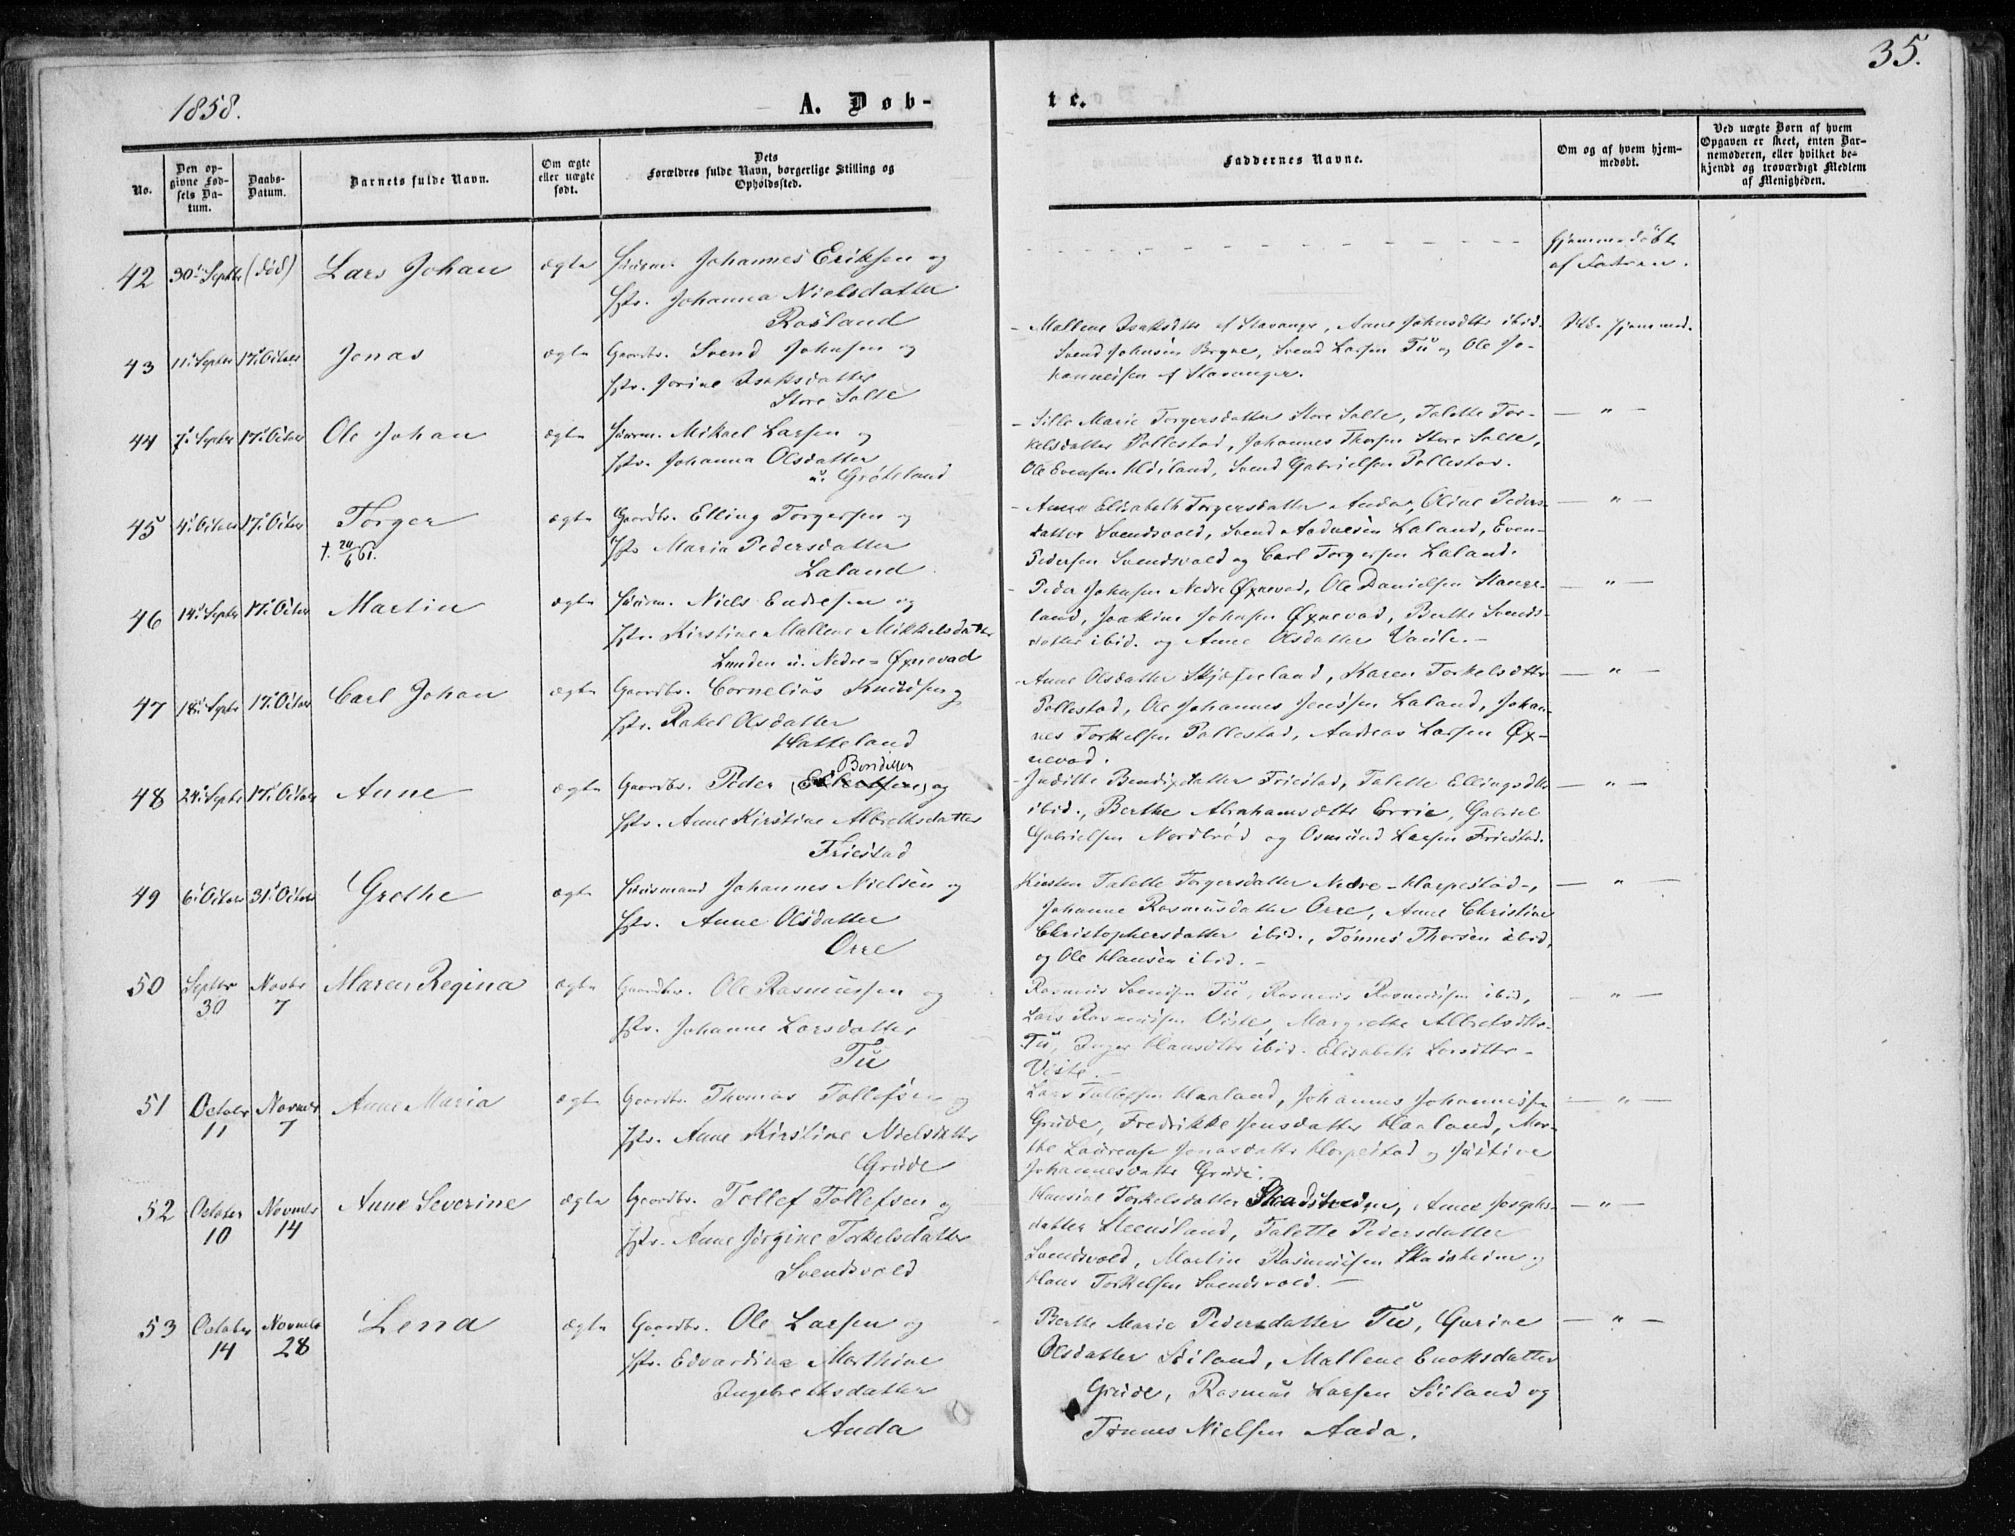 35.
1858.
A. Døb-
te.
No.
Den op-
givne Fød-
sels Da-
tum.
Daabs-
Datum.
Barnets fulde Navn.
Om ægte
eller uægte
født.
Dets
Forældres fulde Navn, borgerlige Stilling og
Opholdssted.
Faddernes Navne.
Om og af hvem hjem-
medøbt.
Ved uægte Børn af hvem
Opgaven er skeet, enten Bar-
nemoderen, eller hvilket be-
kjendt og troværdigt Medlem
af Menigheden.
42 30te Septbr (død) Lars Johan ægte Huusm. Johannes Eriksen og
Hstr. Johanna Nielsdatter
Rosland
Hjemmedöbt
af Fadren.
43 11te Septbr 17de Octobr Jonas ægte Gaardbr. Svend Johnsen og
Hstr. Jorine Isaksdatter
Store Salte
Mallene Isaksdttr af Stavanger, Anne Johnsdttr ibid.
Svend Johnsen Bryne, Svend Larsen Tü og Ole Jo-
hannessen af Stavanger.
44 7de Septbr 17de Octobr Ole Johan ægte Huusm. Mikael Larsen og
Hstr. Johanna Olsdatter
u. Gröteland
Sille Marie Torgersdatter Store Salte, Talette Tor-
kelsdatter Pollestad, Johannes Thorsen Store Salte,
Ole Evensen Høiland, Svend Gabrielsen Pollestad.
— " —
45 4de Octobr 17de Octobr Torger ægte Gaardbr. Elling Torgersen og
Hstr. Maria Pedersdatter
Laland
†. 20/6 61.
Anne Elisabeth Torgersdatter Anda, Oline Peders-
datter Svendsvold, Svend Aadnesen Laland, Even
Pedersen Svendsvold og Carl Torgersen Laland.
— " —
46 14de Septbr 17de Octobr Martin ægte Huusm. Niels Endresen og
Hstr. Kirstine Mallene Mikkelsdatter
Lunden u. Nedre-Øxnevad
Peder Johnsen Nedre Øxnevad, Ole Danielsen Stange-
land, Joakim Johnsen Øxnevad, Berthe Svends-
datter ibid. og Anne Olsdatter
— " —
47 18de Septbr 17de Octobr Carl Johan ægte Gaardbr. Cornelius Knudsen og
Hstr. Rakel Olsdatter
Hatteland
Anne Olsdatter Skjæfveland, Karen Torkelsdttr
Pollestad, Ole Johannes Jensen Laland, Johan-
nes Torkelsen Pollestad, Andreas Larsen Øx-
nevad.
— " —
48 24de Septbr 17de Octobr Anne ægte Gaardbr. Peder Bendixsen og
Hstr. Anne Kirstine Albrethsdatter
Friestad
Judithe Bendixdatter Friestad, Talette Ellingsdttr
ibid., Berthe Abrahamsdttr Errie, Gabriel
Gabrielsen Nordbrød og Osmund Larsen Friestad.
— " —
49 6te Octobr 31te Octobr Grethe ægte Huusmand Johannes Nielsen og
Hstr. Anne Olsdatter
Orre
Kirsten Talette Torgersdatter Nedre-Horpestad,
Johanne Rasmusdatter Orre, Anne Christine
Christophersdatter ibid., Tönnes Thorsen ibid.
og Ole Hansen ibid.
— " —
50 Septbr 30 Novbr 7 Maren Regina ægte Gaardbr. Ole Rasmussen og
Hstr. Johanne Larsdatter
Tü
Rasmus Svendsen Tü, Rasmus Rasmussen ibid,
Lars Rasmussen Viste, Margrethe Albretsdttr
Tü, Inger Hansdttr ibid. Elisabeth Larsdttr
Viste.
— " —
51 October 11 Novmbr 7 Anne Maria ægte Gaardbr. Thomas Tollefsen og
Hstr. Anne Kirstine Nielsdatter
Grude
Lars Tollefsen Haaland, Johannes Johannessen
Grude, Fredrikke Jensdatter Haaland, Mar-
the Laurense Jonasdatter Horpestad og Justine
Johannesdatter Grude.
— " —
52 October 10 Novmbr 14 Anne Severine ægte Gaardbr. Tollef Tollefsen og
Hstr. Anne Jörgine Torkelsdatter
Svendsvold
Hansine Torkelsdatter Skadsheim, Anne Josephs-
datter Steensland, Talette Pedersdatter
Svendsvold, Martin Rasmussen Skadsheim og
Hans Torkelsen Svendsvold.
— " —
53 October 14 Novmbr 28 Lena ægte Gaardbr. Ole Larsen og
Hstr. Edvardine Marthine
Ingebrethsdatter
Anda
Berthe Marie Pedersdatter Tü, Gurine
Olsdatter Söiland, Mallene Enoksdatter
Grude, Rasmus Larsen Söiland og
Tønnes Nielsen Anda.
— " —